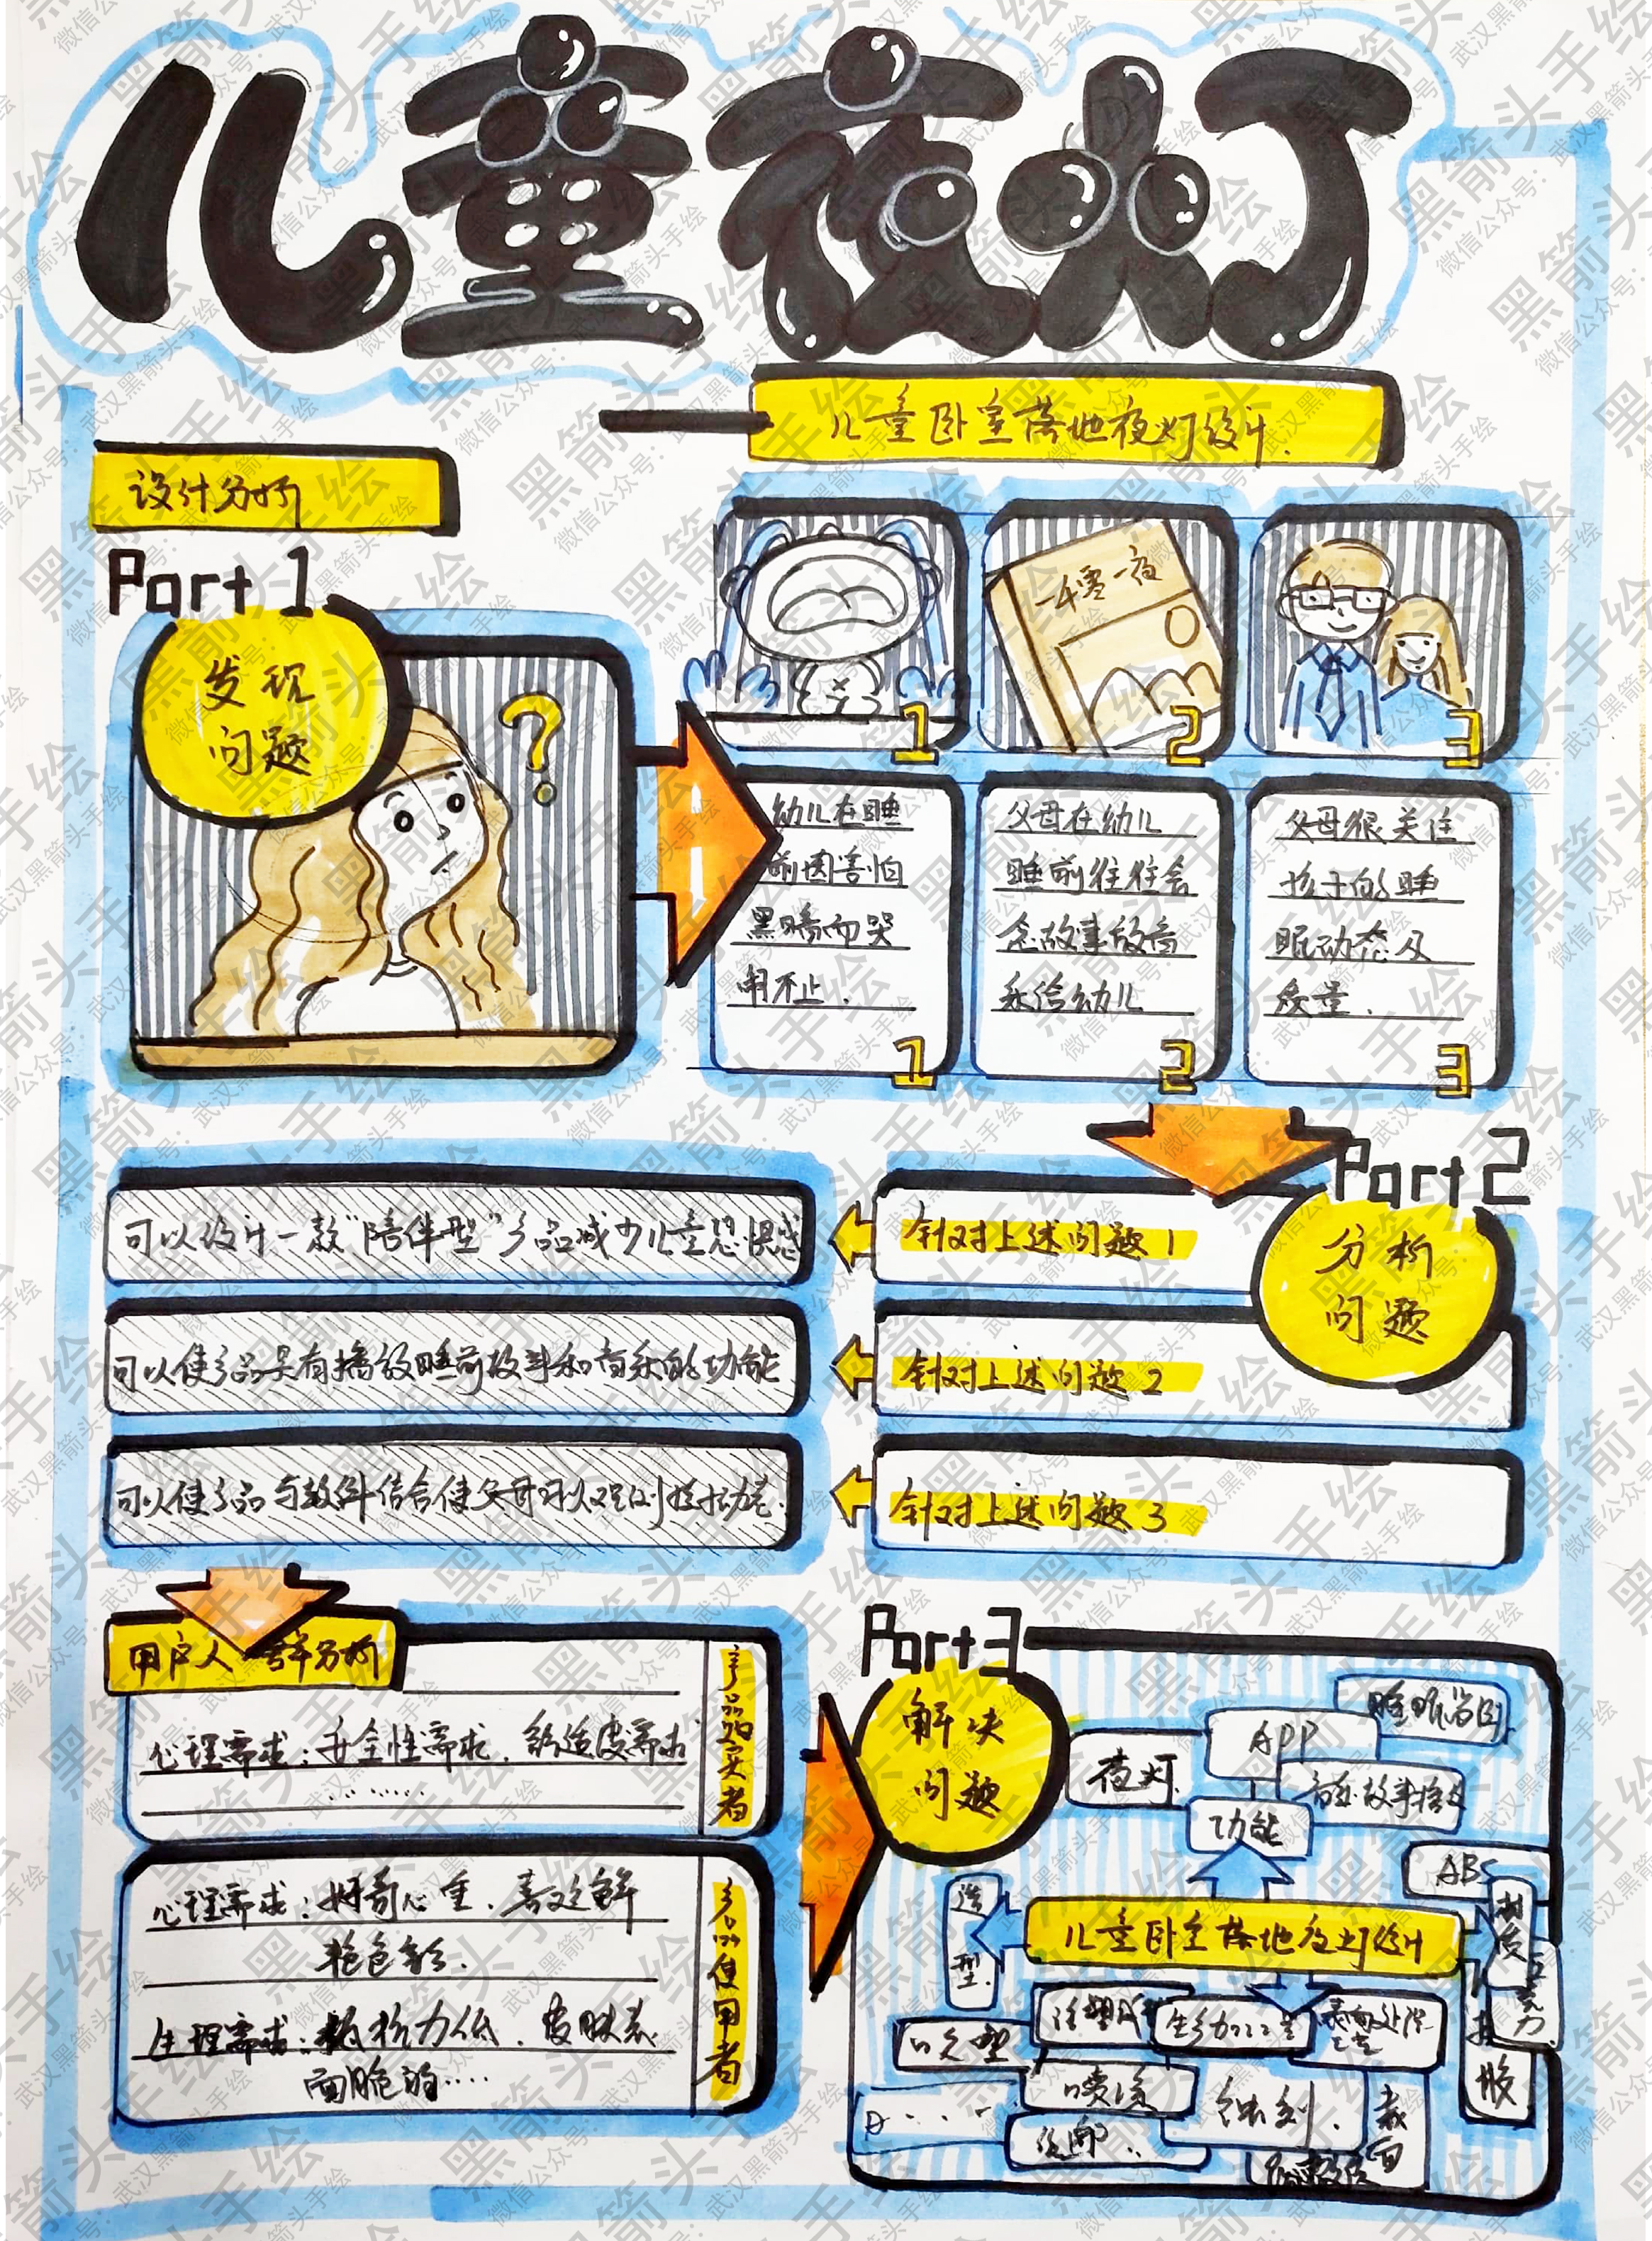 儿童夜灯
儿童卧室落地夜灯设计.
设计分析
Part 1
发现
问题
?
一千零一夜
1
2
3
幼儿在睡
前因害怕
黑暗而哭
闹不止.
1
父母在幼儿
睡前往往会
念故事放音
乐给幼儿
2
父母很关注
孩子的睡
眠动态及
质量.
3
Part 2
分析
问题
针对上述问题1
可以设计一款“陪伴型”产品减少儿童恐惧感
针对上述问题2
可以使产品具有播放睡前故事和音乐的功能
针对上述问题3
可以使产品与软件结合使父母可以观测孩子动态.
用户人群分析
心理需求:安全性需求、舒适度需求
……
产品购买者
心理需求:好奇心重、喜欢鲜
艳色彩.
生理需求:抵抗力低、皮肤表
面脆弱……
产品使用者
Part 3
解决
问题
睡眠监测
APP
夜灯
音乐故事播放
功能
ABS
造型
儿童卧室落地夜灯设计
材质
亚克力
注塑
生产加工工艺
表面处理工艺
吹塑
喷漆
硅胶
丝印..
微信公众号：武汉黑箭头手绘
黑箭头手绘